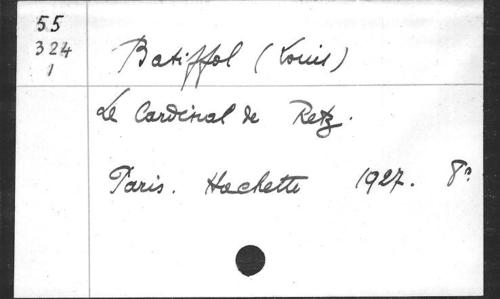 55
324
1
Batiffol (Louis)
Le Cardinal de Retz.
Paris. Hachette 1927. 8º